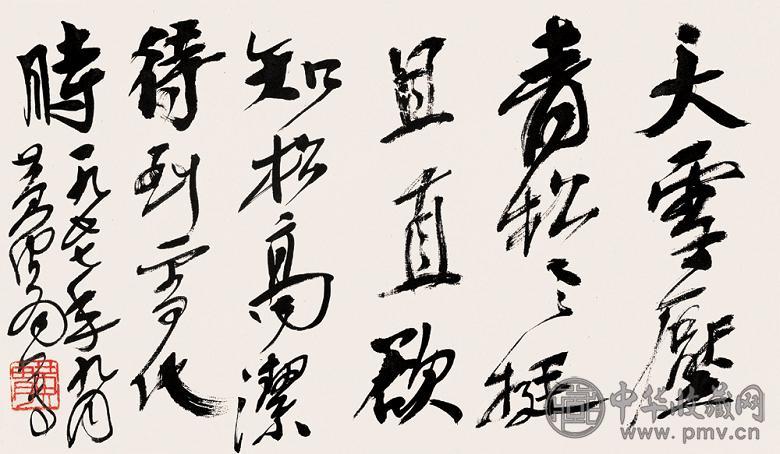 大雪壓
青松々々挺
且直欲
知松高潔
待到雪化
時
一九七七年九月
中华收藏网
www.pmv.cn